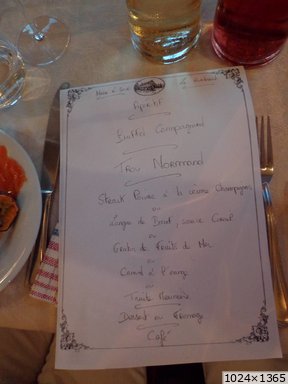 Apéritif
Buffet Campagnard
Trou Normand
Steak Poivre à la creme Champignons
ou
Langue de Boeuf, sauce
ou
Gratin de Fruits de Mer
ou
Canard à l'orange
ou
Truite Meunière
Dessert ou Fromage
Café
1024×1365